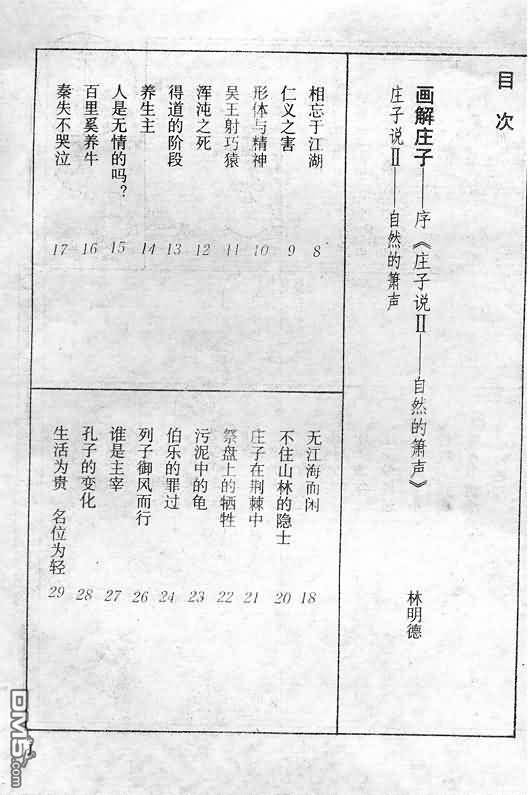 目次
画解庄子——序《庄子说Ⅱ——自然的箫声》 林明德
庄子说Ⅱ——自然的箫声
相忘于江湖 8
仁义之害 9
形体与精神 10
吴王射巧猿 11
浑沌之死 12
得道的阶段 13
养生主 14
人是无情的吗? 15
百里奚养牛 16
秦失不哭泣 17
无江海而闲 18
不住山林的隐士 20
庄子在荆棘中 21
祭盘上的牺牲 22
污泥中的龟 23
伯乐的罪过 24
列子御风而行 26
谁是主宰 27
孔子的变化 28
生活为贵 名位为轻 29
DM5.com